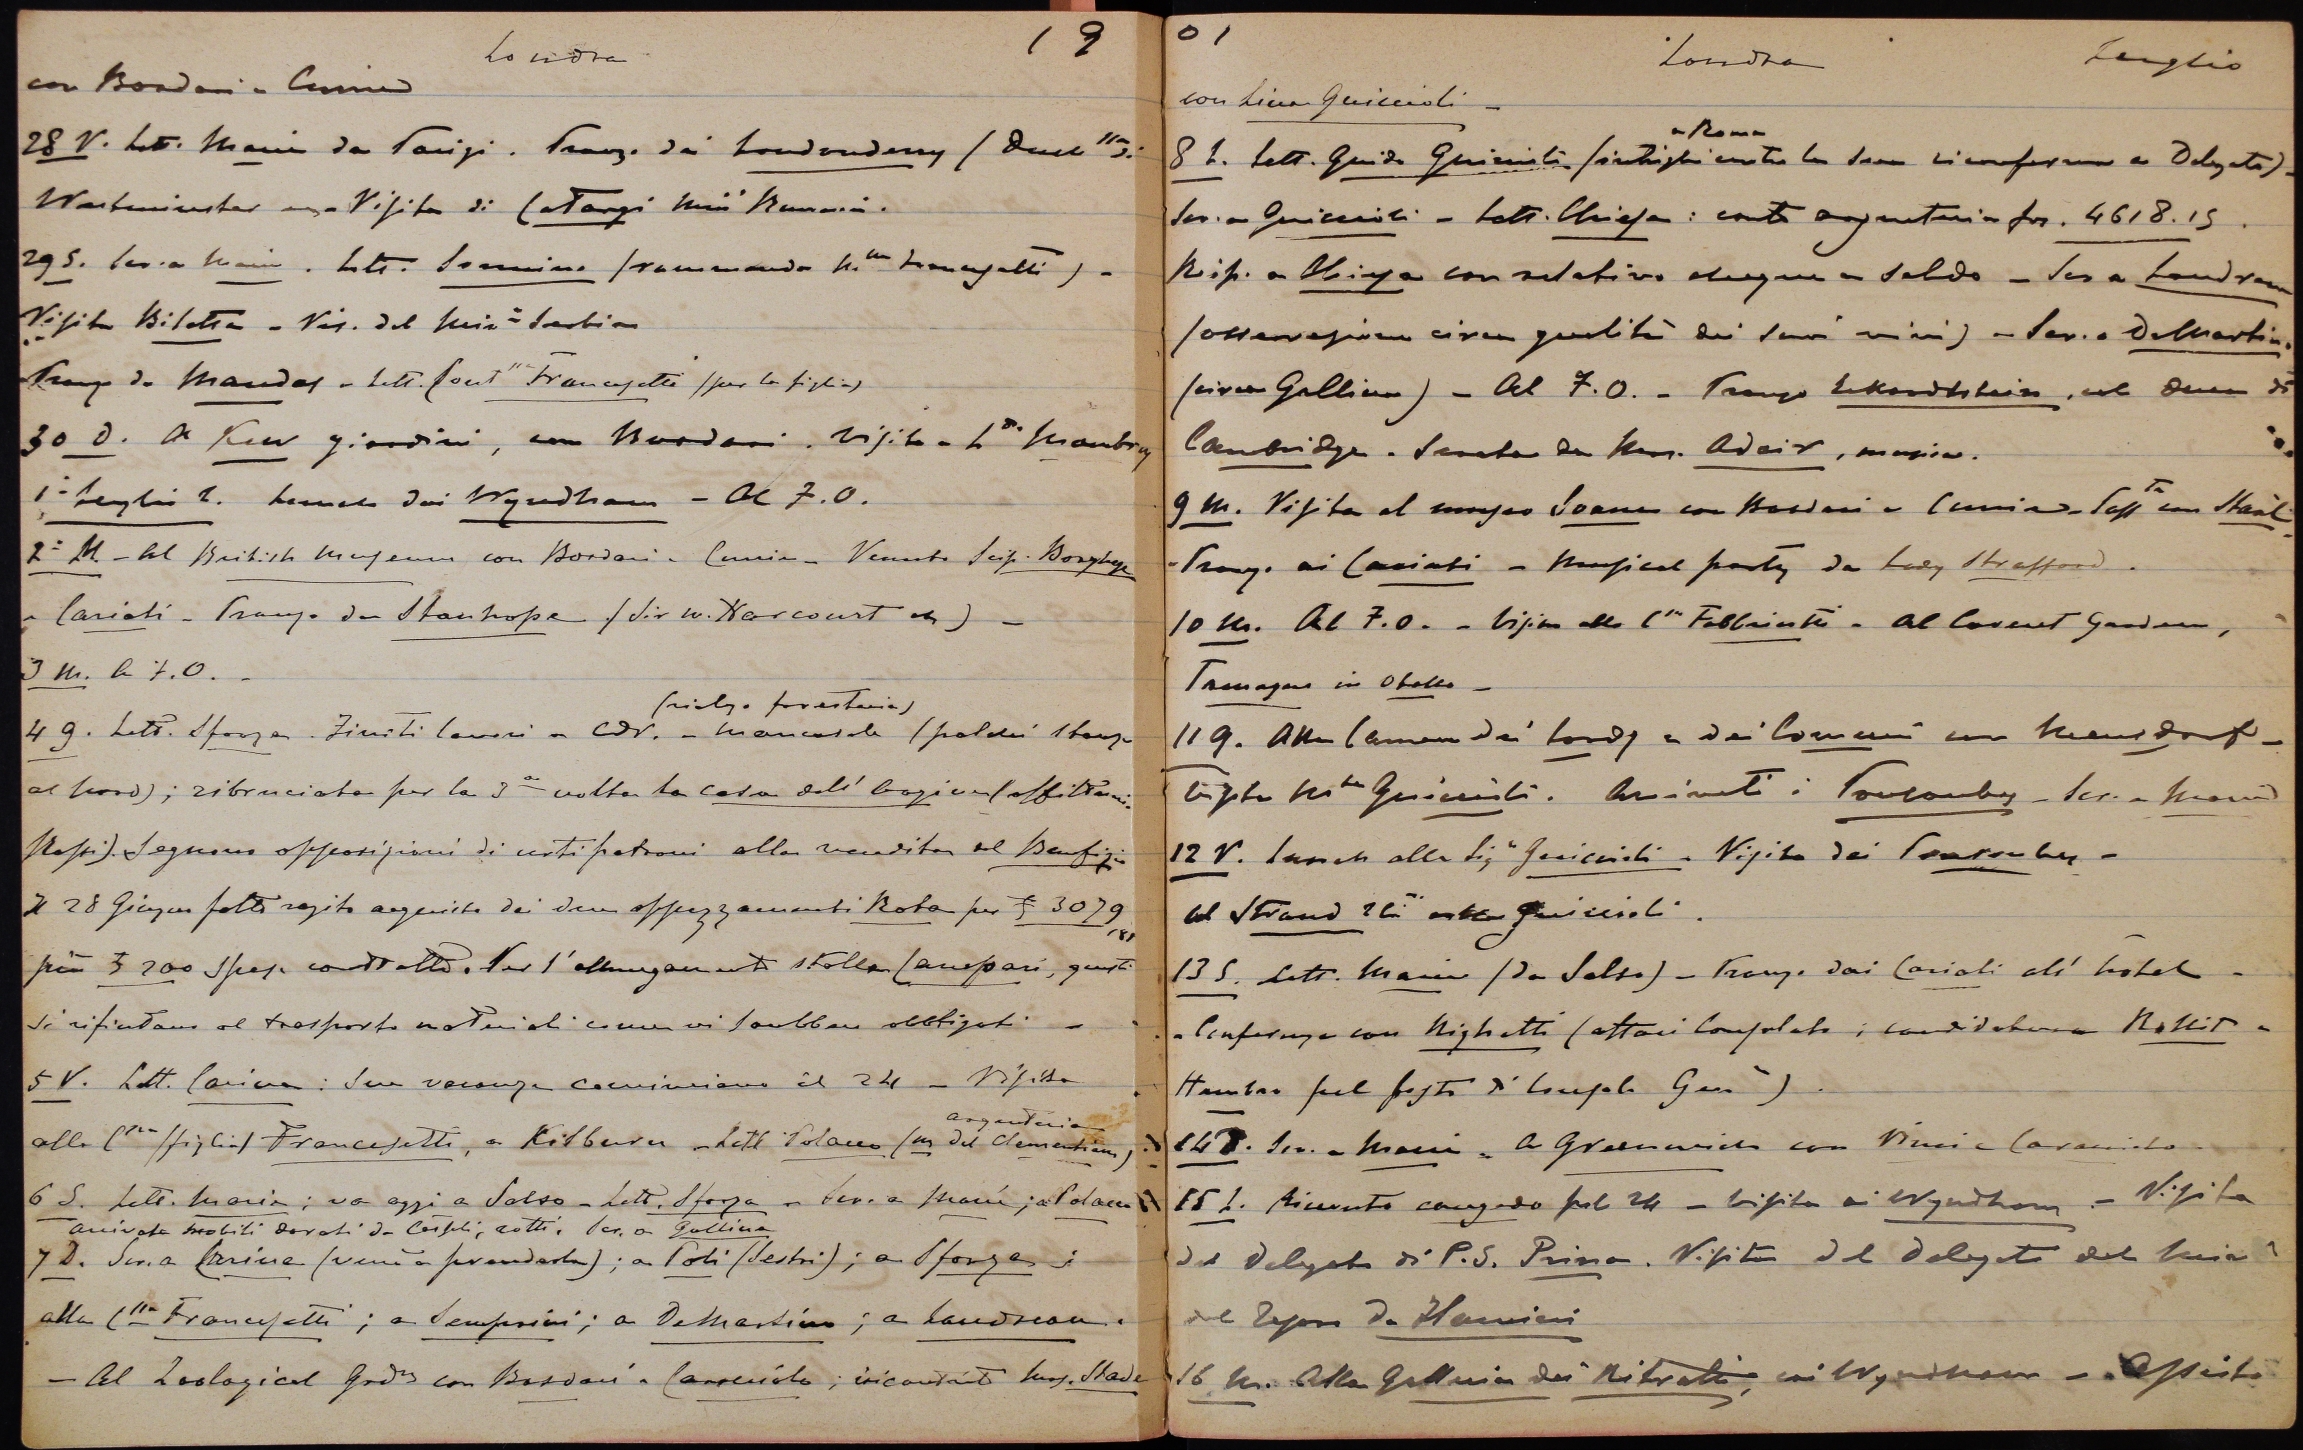 Londra 19
con Bordari e Cuniad
28 V. Lett. Maria da Parigi. Pranzo dai Londonderry (Duch.ssa di
Westminster Visita di Catargi Min° Rumania.
29 S. Scr. a Maria. Lett. Sonnino (raccomanda M.lle Francesetti) -
Visita Biletta - Vis. del Min° Serbia
Pranzo da Mandas - Lett. Cont.ssa Francesetti (per la figlia)
30 D. A Kew giardini, con Bordari. Visita a L.
1° Luglio L. Lunch dai Wyndham - Al F.O.
2° M. - Al British Museum con Bordari e - Venuto Scip. Borghese
e Cariati - Pranzo da Stanhope (Sir W. Harcourt etc) -
3 M. A F.O. -
4 G. Lett. Sforza. Finiti lavori a CdV. - Mancasale (palchi stanze
(rialzo foresteria)
al nord); ribruciata per la 3a volta la casa dell'
Rossi). Seguono opposizioni di certi patroni alla vendita del Benefizio
Il 28 Giugno fatto rogito acquisto dei due appezzamenti Rota per £ 3079
più £ 200 spese contratto. Per l'allungamento stalla Canepari, questi
si rifiutano al trasporto materiali come vi sarebbero obbligati -
5 V. Lett. Carina: sue vacanze cominciano il 24 - Visita
alla C.ssa (figlia) Francesetti, a Kilburn - Lett. Polacco (argenteria del Clementiano)
6 S. Lett. Maria; va oggi a Salso - Lett. Sforza - Scr. a Maria; a Polacco
arrivate mobili dorati da Ceresoli, rotti. Scr. a Gallina
7 D. Scr. a Carina (verrò a prenderla); a Poli (Sestri); a Sforza;
alla C.ssa Francesetti; a Semprini; a DeMartino; a Landreau.
- Al Zoological Gard.ns con Bordari e Caracciolo; incontrato Mrs. Slade
01 Londra Luglio
con Lina Guiccioli -
8 L. Lett. Guido Guiccioli (intrighi contro la sua riconferma a Delegato) -
a Roma
Scr. a Guiccioli - Lett. Chiesa: conto argenteria frs. 4618.15.
Risp. a Chiesa con relativo chèque a saldo - Scr. a Landreau
(osservazioni circa qualità dei suoi vini) - Scr. a DeMartino
(circa Gallina) - Al F.O. - Pranzo Eckardstein, col Duca di
Cambridge. Serata da Mrs. Adair, musica.
9 M. Visita al museo Soane con Bordari e
- Pranzo ai Cariati - Musical party da Lady Strafford.
10 M. Al F.O. - Visita alla C.ssa Fabbricotti - Al Covent Garden,
Tamagno in Otello -
11 G. Alla Camera dei Lords e dei Comuni con Mensdorf -
Visita M.sa Guiccioli. Arrivati i Ponsonby - Scr. a Maria
12 V. Lunch alla Sig.a Guiccioli - Visita dei Ponsonby -
al Strand colla Guiccioli.
13 S. Lett. Maria (da Salso) - Pranzo dai Cariati all'hôtel -
- Conferenza con Righetti (affari Consolato; candidatura Rollit e
Hambro pel posto di Console Gen.e).
14 D. Scr. a Maria - A Greenwich con Vinci e Caracciolo
15 L. Ricevuto congedo pel 24 - Visita ai Wyndham - Visita
del Delegato di P.S. Prina. Visita del Delegato del Min°
del Tesoro
16 M. Alla Galleria dei Ritratti, coi Wyndham -